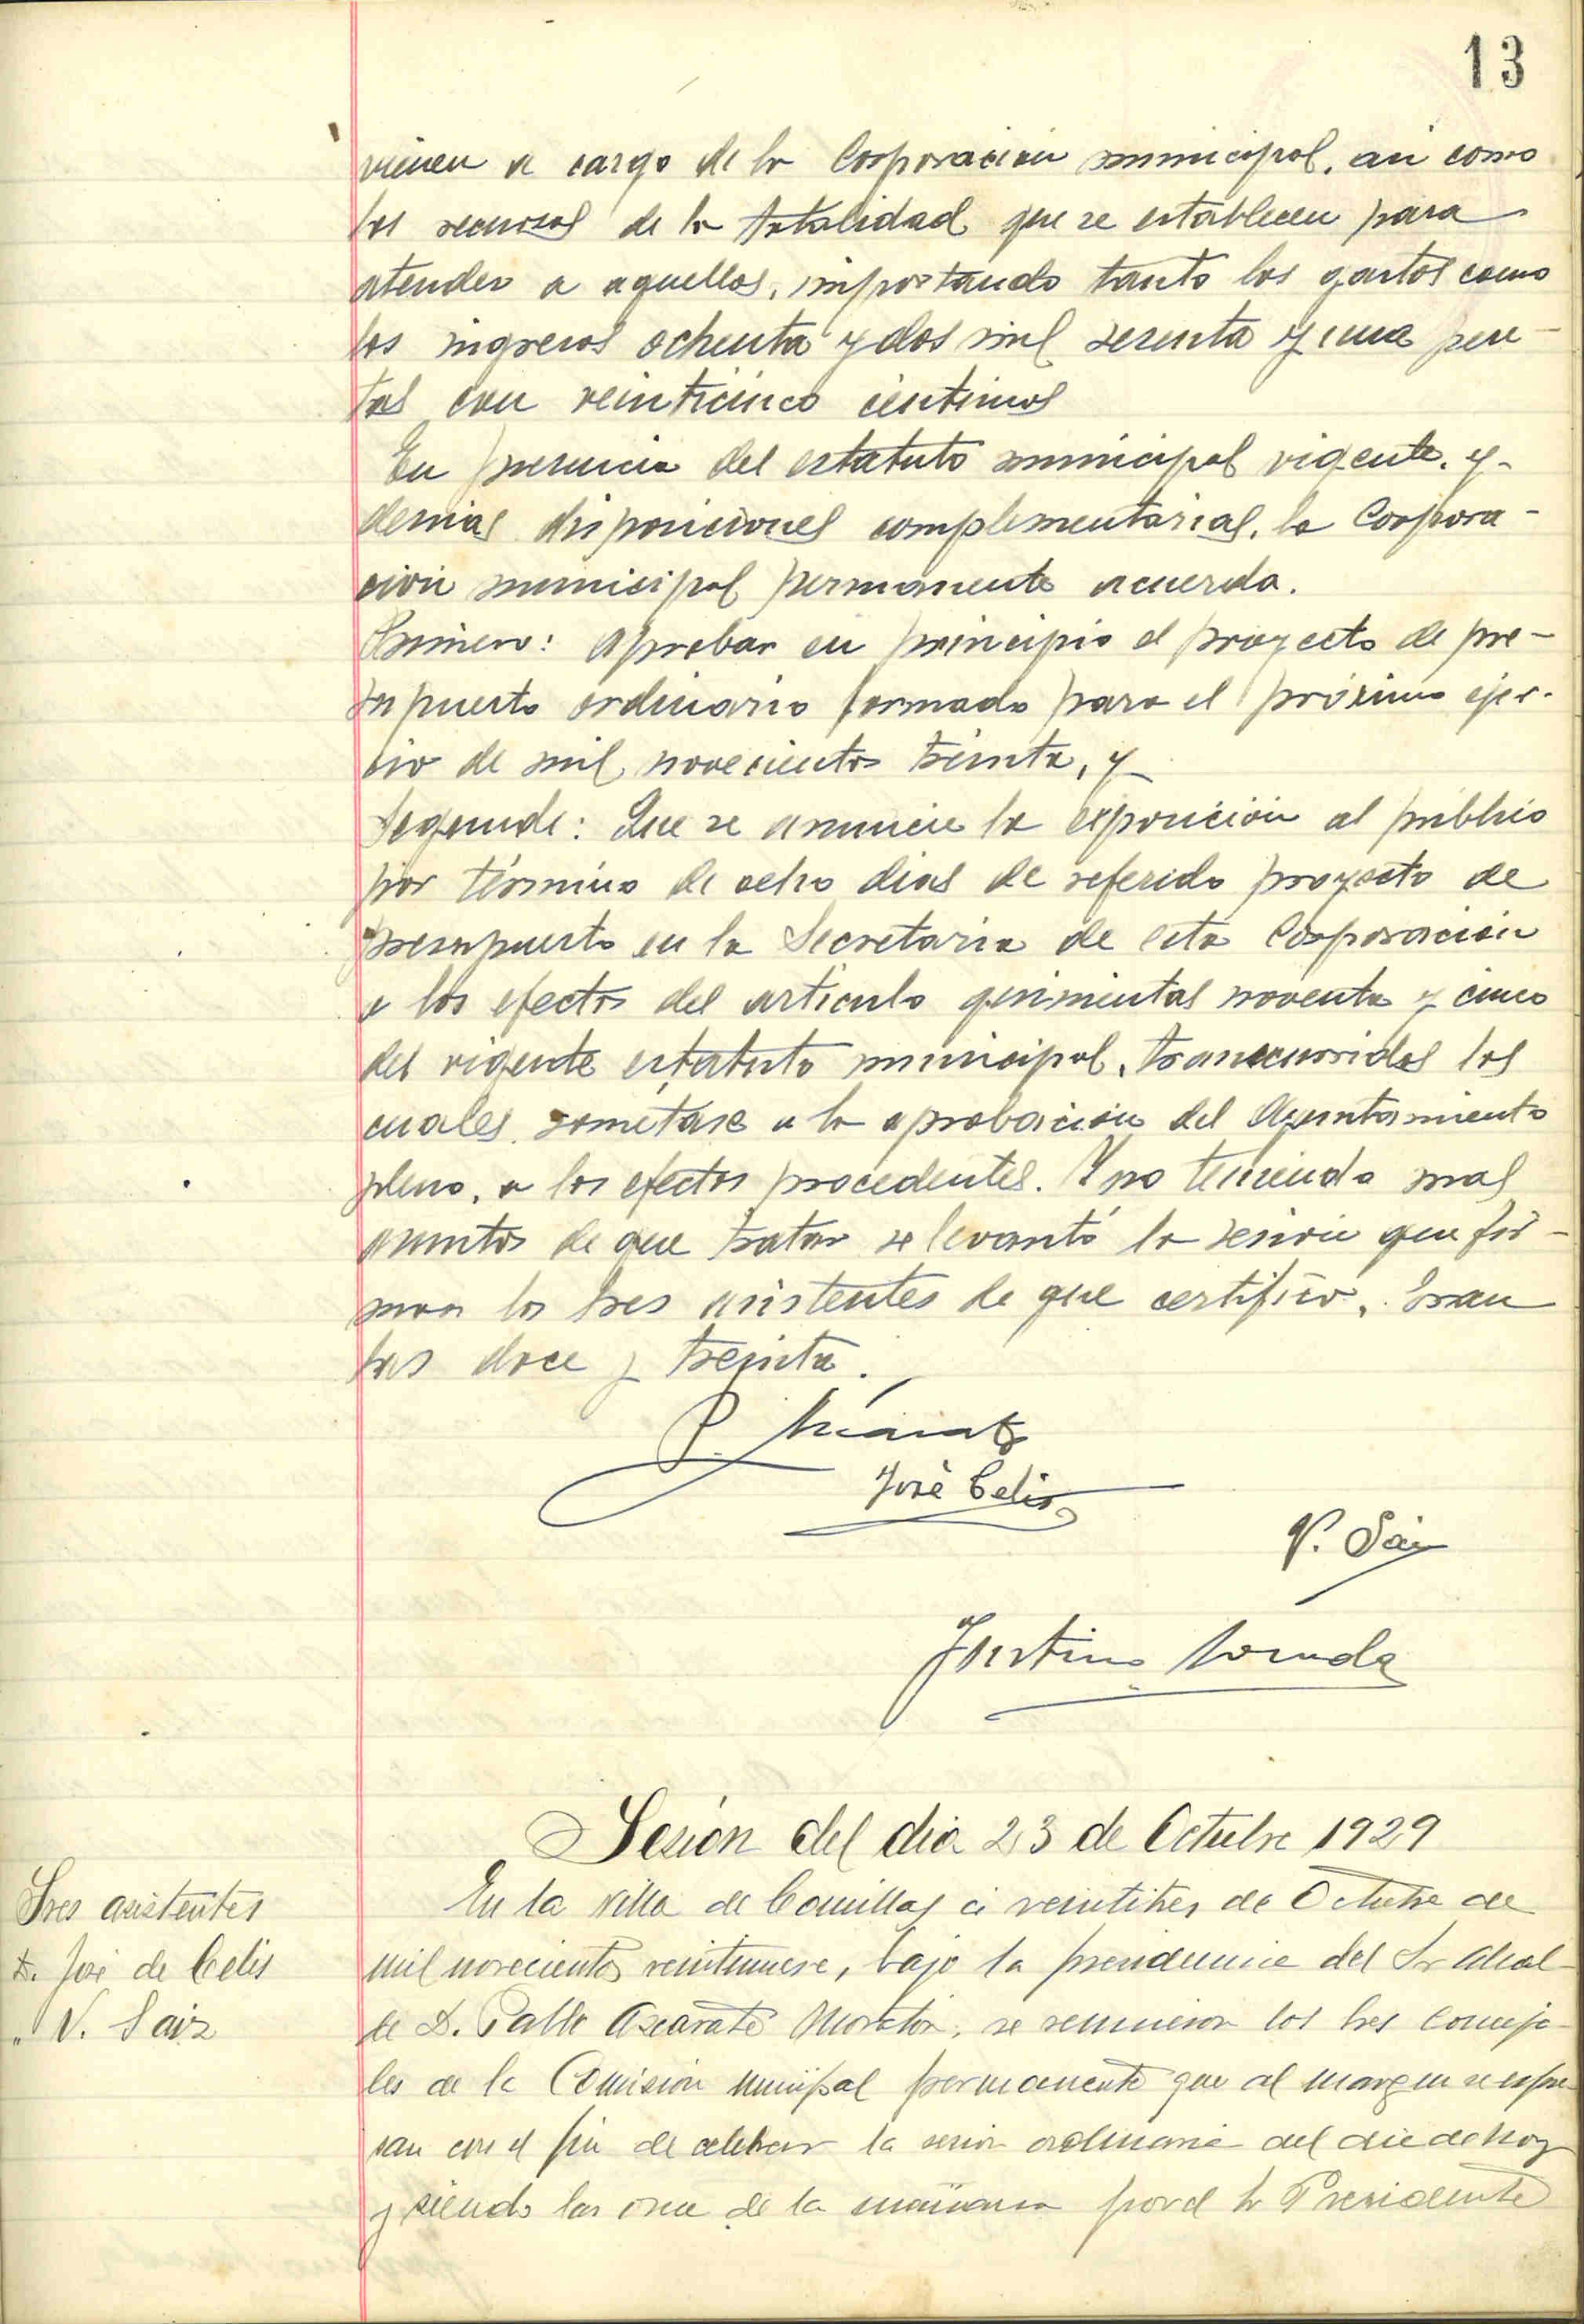 13
vienen a cargo de la Corporación municipal, asi como
los recursos de la totalidad que se establecen para
atender a aquellos, importando tanto los gastos como
los ingresos ochenta y dos mil sesenta y una pese-
tas con veinticinco céntimos
En presencia del estatuto municipal vigente, y
demas disposiciones complementarias, la Corpora-
ción municipal permanente acuerda.
Primero: Aprobar en principio el proyecto de pre-
supuesto ordinario formado para el próximo ejer-
cio de mil novecientos treinta, y
Segundo: Que se anuncie la exposición al público
por término de ocho dias de referido proyecto de
presupuesto en la Secretaria de esta Corporación
a los efectos del articulo quinientos noventa y cinco
del vigente estatuto municipal, transcurridos los
cuales, sométase a la aprobación del Ayuntamiento
pleno, a los efectos procedentes. Y no teniendo mas
asuntos de que tratar se levantó la sesión que fir-
man los Sres asistentes de que certifico. Eran
las doce y treinta.
P. Azcárate
José Celis
V. Saiz
Justino
Sesión del dia 23 de Octubre 1929
Sres asistentes
D. José de Celis
" V. Saiz
En la villa de Comillas a veintitres de Octubre de
mil novecientos veintinueve, bajo la presidencia del Sr Alcal-
de D. Pablo Azcarate Moratón, se reunieron los Sres conceja-
les de la Comisión municipal permanente que al margen se expre-
san con el fin de celebrar la sesion ordinaria del dia de hoy
y siendo las once de la mañana por el Sr Presidente